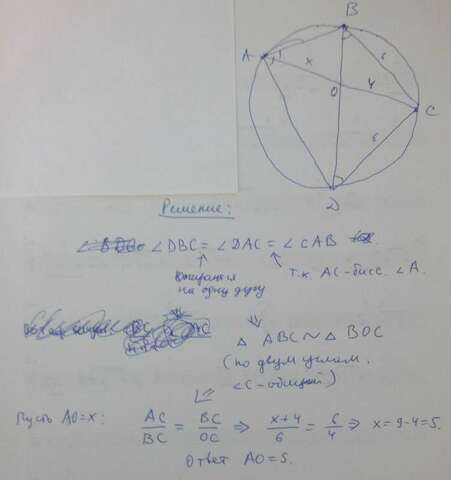 B
A
x
6
O
4
C
6
D
Решение:
∠DBC = ∠DAC = ∠CAB
опираются на одну дугу
т.к. AC-бисс. ∠A.
△ ABC ~ △ BOC
(по двум углам.
∠C-общий)
Пусть AO=x: AC/BC = BC/OC ⇒ x+4/6 = 6/4 ⇒ x=9-4=5.
Ответ AO=5.